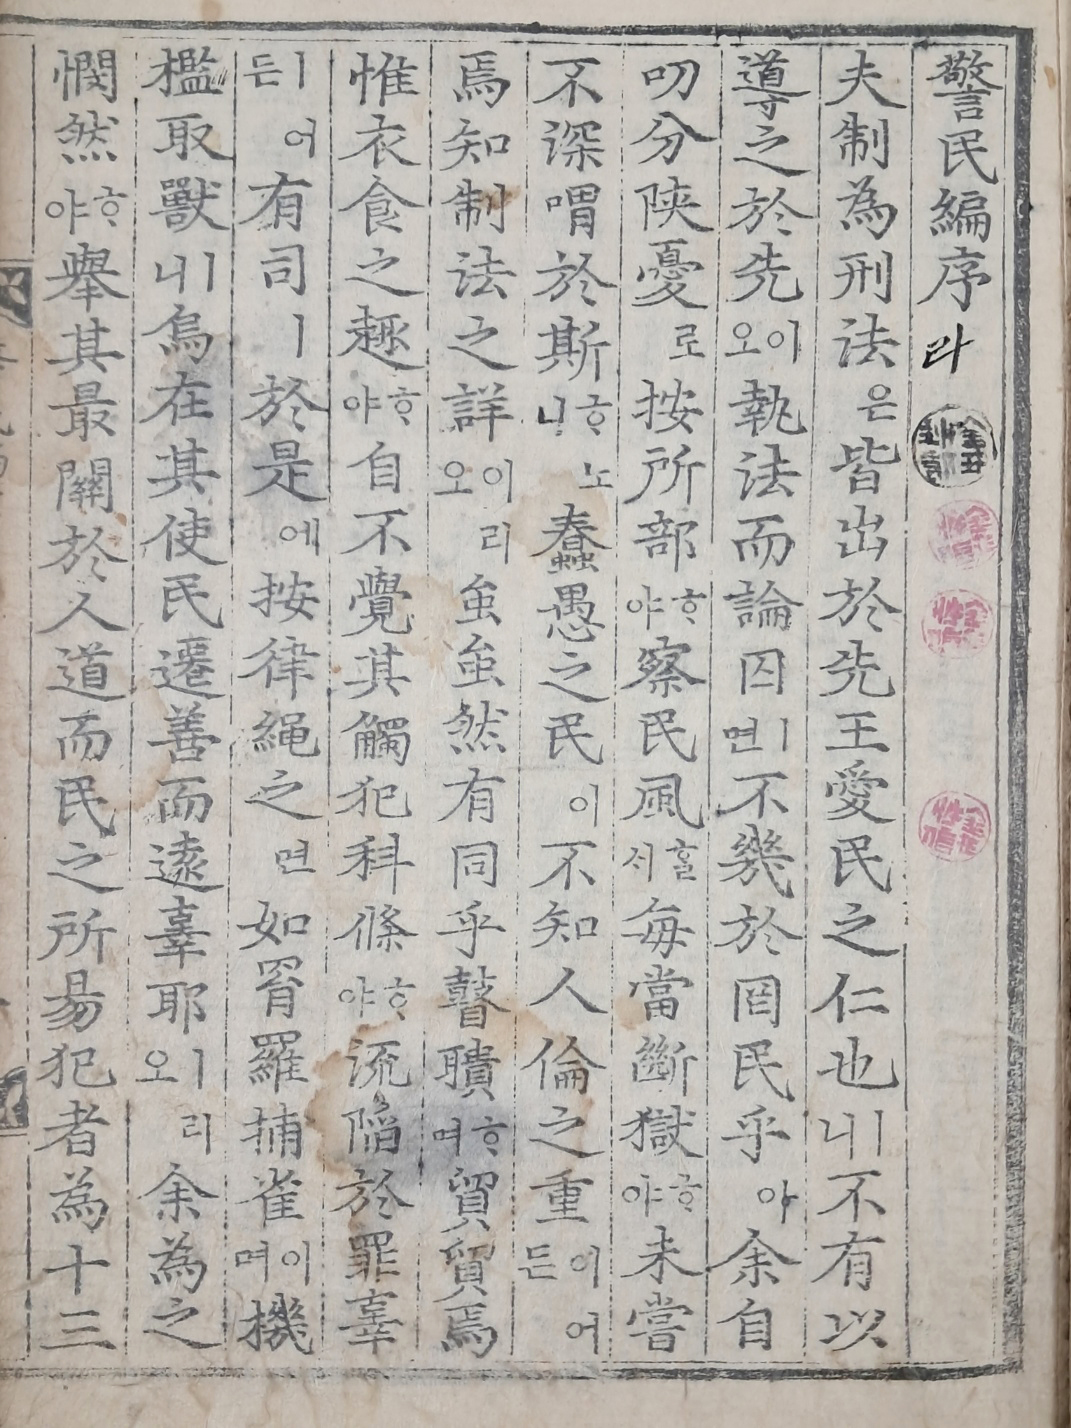 警民編序라
夫制為刑法은皆出於先王愛民之仁也ㅣ니不有以
導之於先이오執法而論囚ㅣ면不幾於罔民乎아余自
叨分陜憂로按所部ᄒᆞ야察民風ᄒᆞᆯᄉᆡ每當斷獄ᄒᆞ야未嘗
不深喟於斯ᄒᆞ니노蠢愚之民이不知人倫之重이어든여
焉知制法之詳이오리蚩蚩然有同乎瞽聵ᄒᆞ여貿貿焉
惟衣食之趣ᄒᆞ야自不覺其觸犯科條ᄒᆞ야流陷於罪辜
ㅣ어든有司ㅣ於是에按律繩之면如罥羅捕雀이며機
檻取獸ㅣ니烏在其使民遷善而遠辜耶ㅣ오리余為之
憫然ᄒᆞ야擧其最關於人道而民之所易犯者為十三